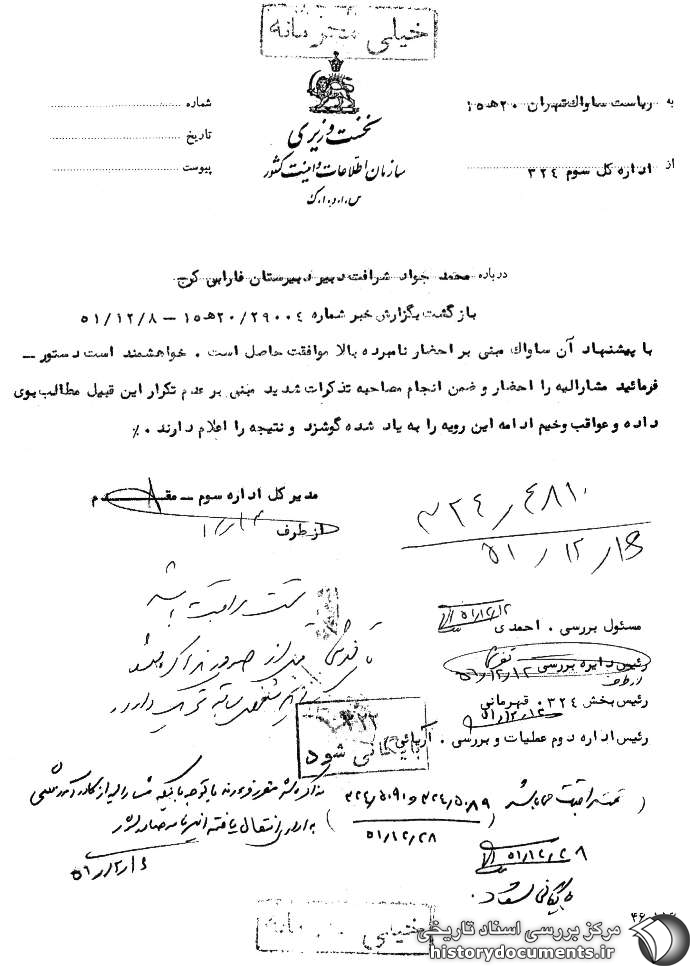 خیلی محرمانه
به ریاست ساواک تهران ۲۰ه۱۵
از اداره کل سوم ۳۲۴
نخست وزیری
سازمان اطلاعات و امنیت کشور
س.ا.و.ا.ک
شماره
تاریخ
پیوست
درباره محمد جواد شرافت دبیر دبیرستان فارابی کرج
بازگشت بگزارش خبر شماره ۲۹۰۰۴/۲۰ه۱۵ – ۵۱/۱۲/۸
با پیشنهاد آن ساواک مبنی بر احضار نامبرده بالا موافقت حاصل است . خواهشمند است دستور –
فرمائید مشارالیه را احضار و ضمن انجام مصاحبه تذکرات شدید مبنی بر عدم تکرار این قبیل مطالب بوی
داده و عواقب وخیم ادامه این رویه را به یاد شده گوشزد و نتیجه را اعلام دارند ٠٪
مدیر کل اداره سوم – مقدم
از طرف
۳۲۴٫۴۸۱۰
۵۱٫۱۲٫۱۶
تحت مراقبت باشد
مسئول بررسی . احمدی ۵۱/۱۲/۱۲
رئیس دایره بررسی
از طرف ۵۱/۱۲/۱۲
رئیس بخش ۳۲۴ . قهرمانی
۵۱/۱۲/۱۲
رئیس اداره دوم عملیات و بررسی . آریائی
۳۲۲
بایگانی شود
( تحت مراقبت میباشد ۳۲۴٫۵۰۸۹ و ۳۲۴٫۵۰۹۰
۵۱٫۱۲٫۲۸ )
۵۱٫۱۲٫۱۶
۵۱٫۱۲٫۲۸
بایگانی شود
خیلی محرمانه
مرکز بررسی اسناد تاریخی
historydocuments.ir